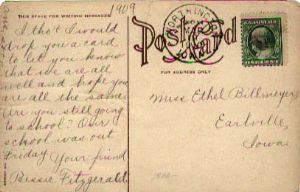 1909
THIS SPACE FOR WRITING MESSAGES
I tho't I would
drop you a card
to let you know
that we are all
well and hope you
are all the same.
Are you still going
to school? Our
school was out
Friday. Your friend
Bessie Fitzgerald
Post Card
FOR ADDRESS ONLY
Miss Ethel Billmeyer,
Earlville,
Iowa.